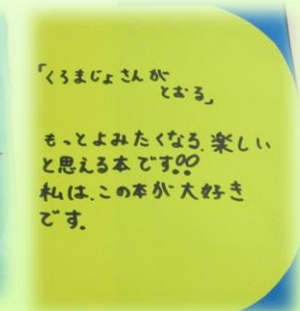 「くろまじょさんが
とおる」
もっとよみたくなる.楽しい
と思える本です!!
私は.この本が大好き
です.